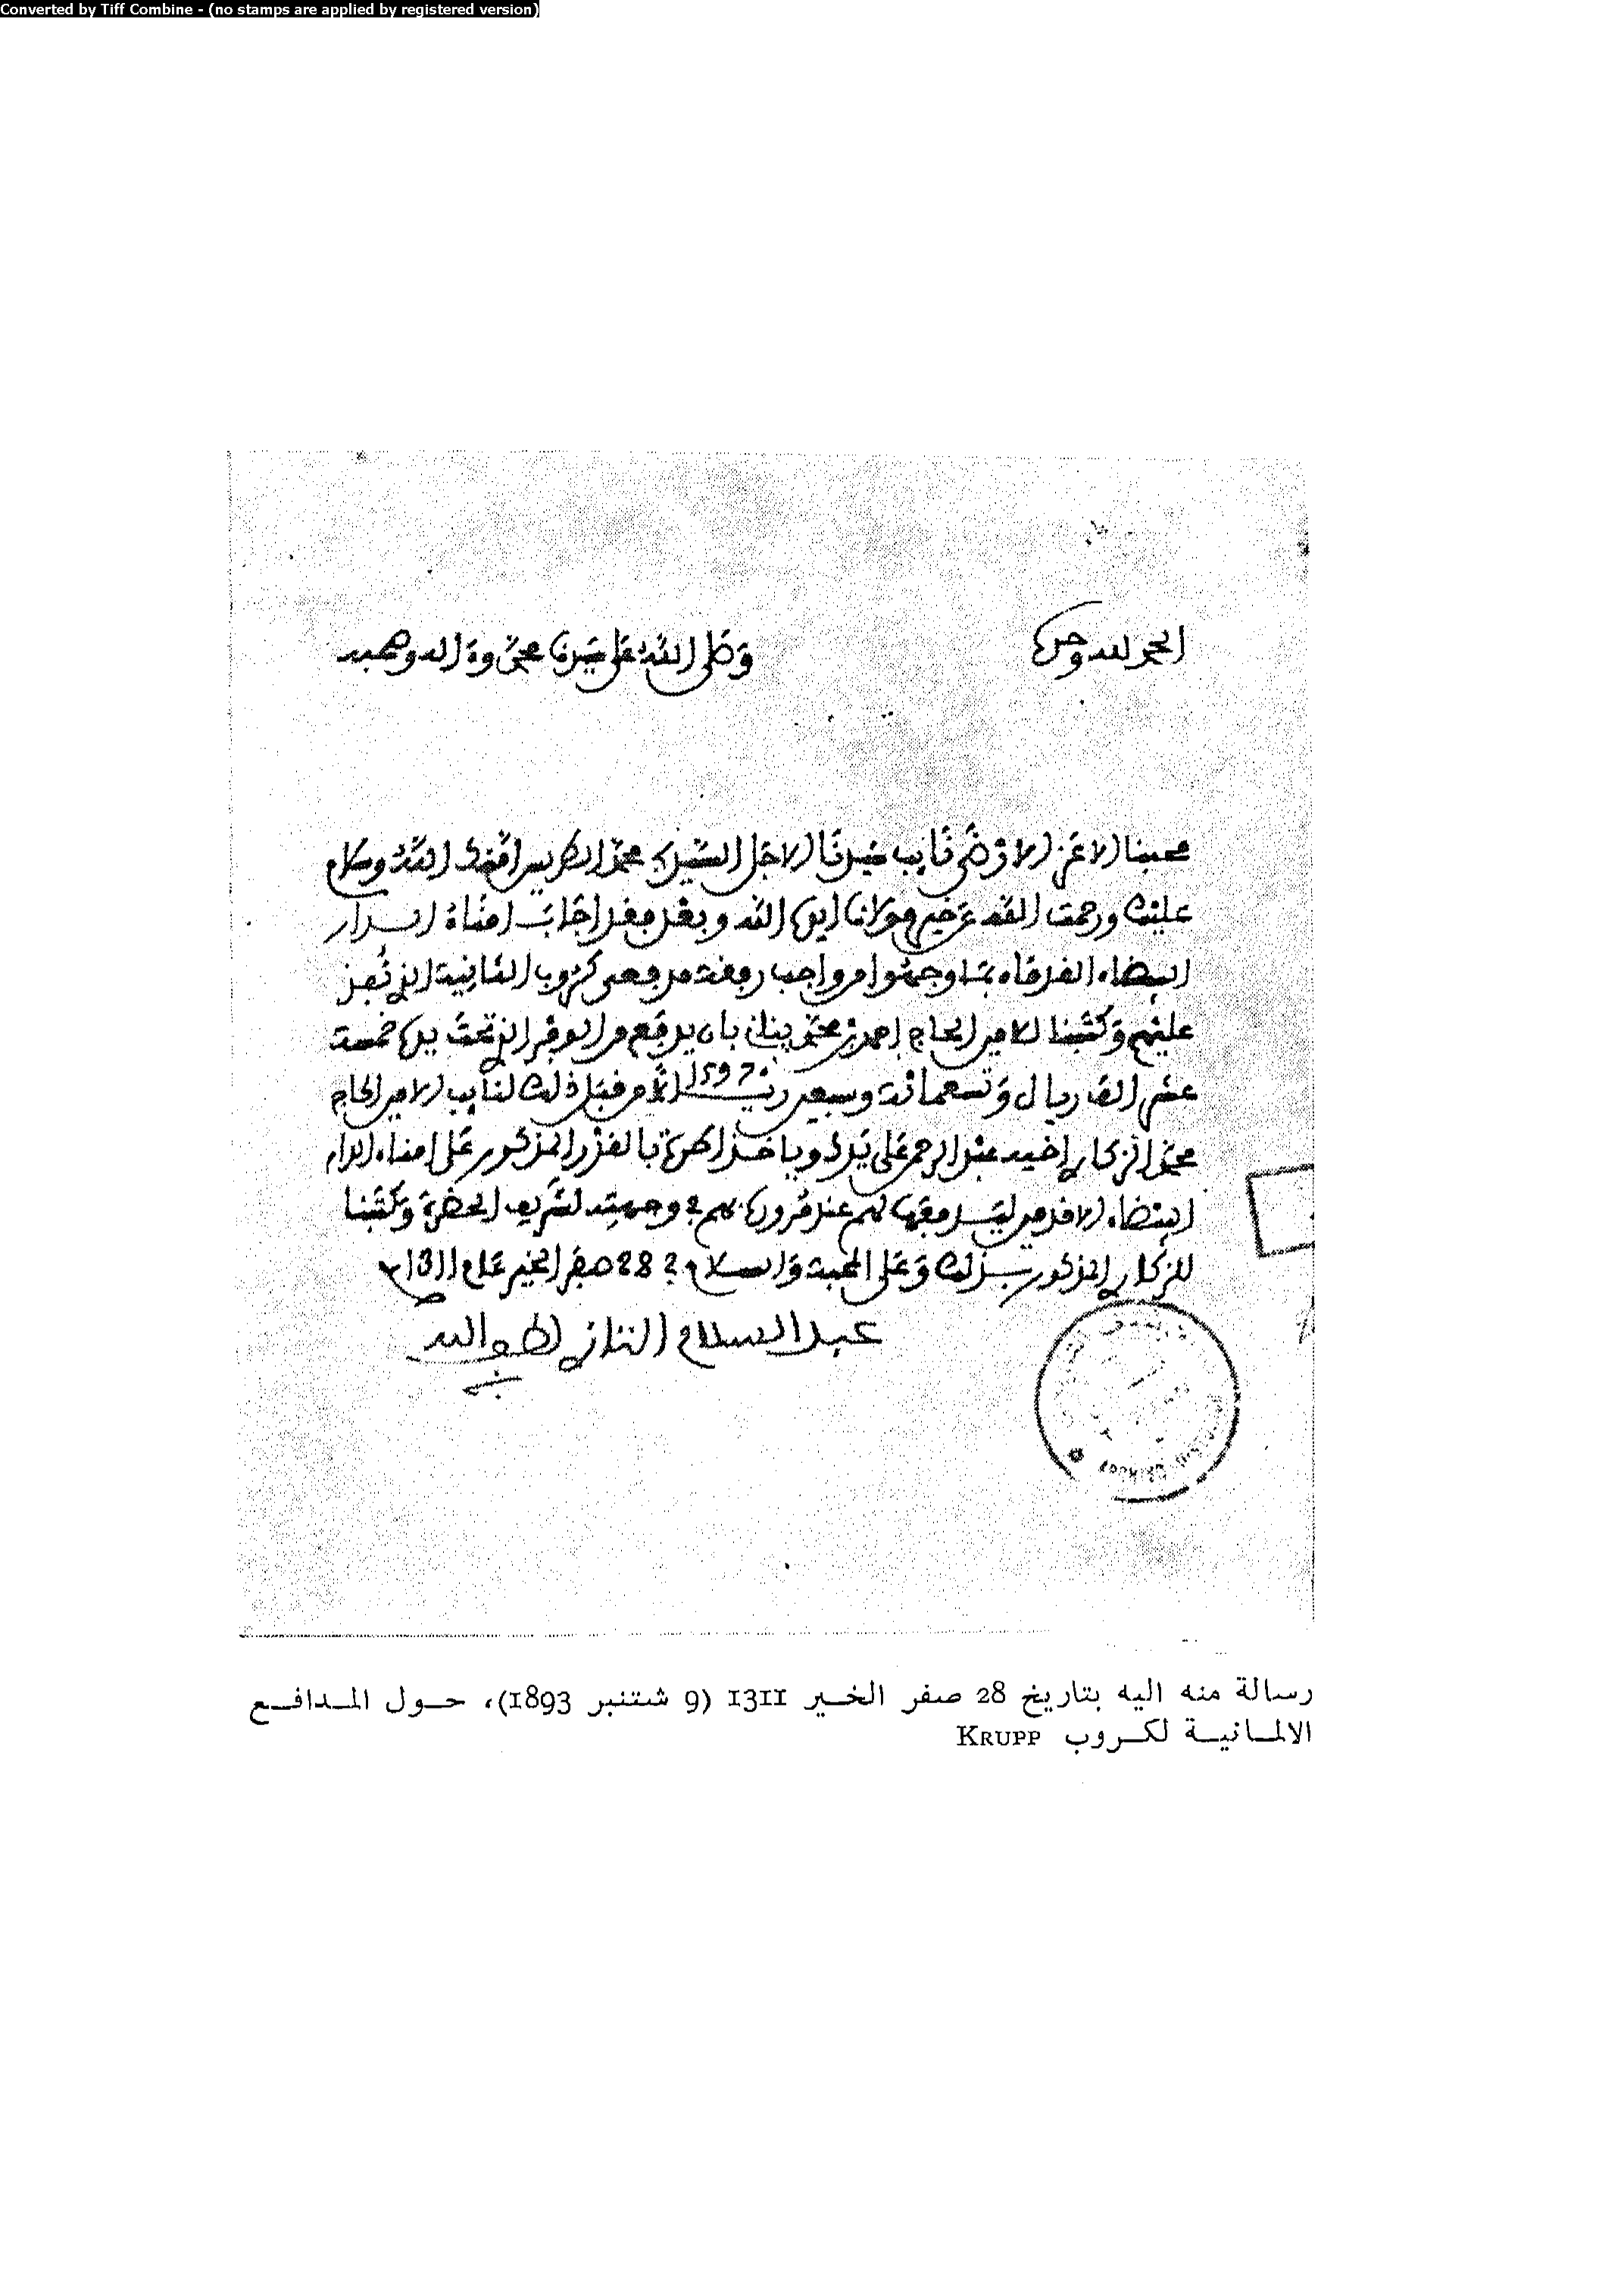 Converted by Tiff Combine - (no stamps are applied by registered version)
الحمد لله وحده
وصلى الله على سيدنا محمد وءاله وصحبه
محبنا الاعز الارضى نايب سيدنا الاجل السيد محمد الطريس امنك الله وسلام
عليك ورحمت الله عن خير مولانا ايده الله وبعد فقد اجاب امناء الدار
البيضاء الفرقاء بما وجهوا من واجب مدفعى كروب الثانية الذى
عليهم وكتبنا للامين الحاج احمد بن محمد بنانى بان يدفع من الوفر الذى تحت يده خمسة
عشر الف ريال وتسعمائة وسبعين ريالا 15970 من قبل ذلك لنايب الامين الحاج
محمد الزكارى اخيه عبد الرحمن على يدك وياخذ بالقدر المذكور على امناء الدار
البيضاء الاقدمين لهم عند قدومهم في وجهته لشريف الحضرة وكتبنا
للزكارى المذكور بذلك وعلى المحبة والسلام في 28 صفر الخير عام 1311
عبد السلام التازي لطف الله
به
رسالة منه اليه بتاريخ 28 صفر الخير 1311 (9 شتنبر 1893)، حول المدافع
الالمانية لكروب KRUPP